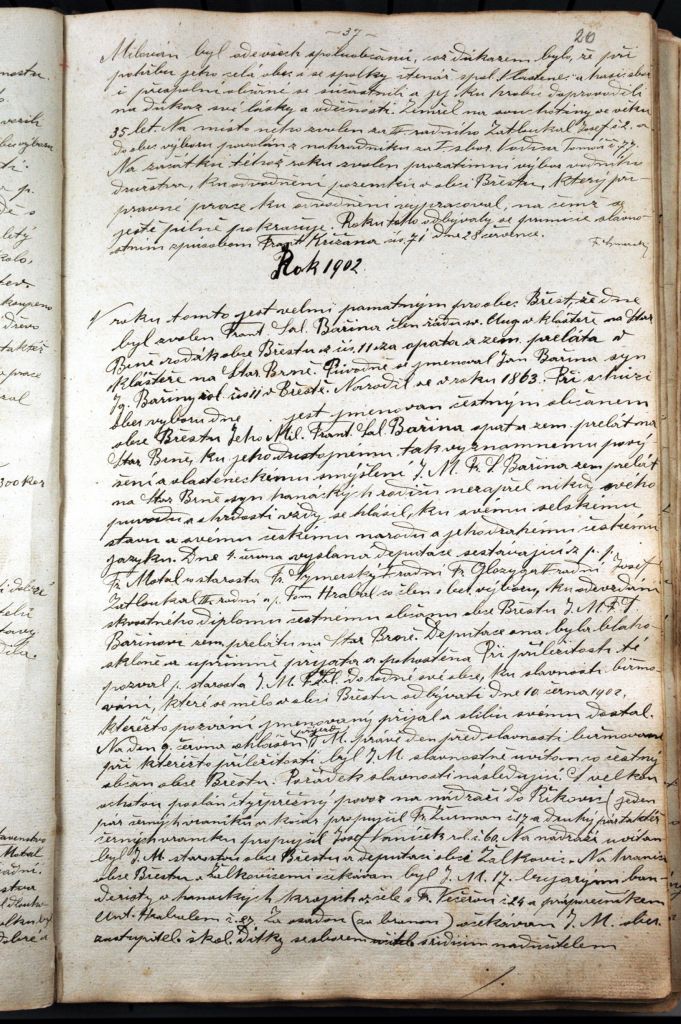 — 37 —
20
Milován byl ode všech spoluobčanů, což důkazem bylo, že při
pohřbu jeho celá obec a se spolky čtenář. spol. Vlastenec a hasič. sbor
i přespolní občané se súčastnili a jej ku hrobu doprovodili
na důkaz své lásky a vděčnosti. Zemřel na souchotiny ve věku
35 let. Na místo něho zvolen za II radního Zatloukal Josef č 2. a
do obec. výboru povolán z nahradníků za I. sbor. Vodica Tomáš č. 77.
Na začátku téhož roku zvolen prozatimní výbor vodního
družstva, ku odvodnění pozemků v obci Břestu, který pří-
pravné práce ku odvodnění vypracoval, na čemž až
ještě pilně pokračuje. Roku toho odbývaly se primice slavno-
stním způsobem Frant. Křižana z č. 71 dne 28 července.
Rok 1902.
V roku tomto jest velmi památným pro obec Břest, že dne
byl zvolen Frant. Sal. Bařina člen řádu sv. Aug. v klášteře na Star
Brně rodák obce Břestu z čís. 11. za opata a zem. preláta v
klášteře na Star. Brně. Původně se jmenoval Jan Bařina syn
Ig. Bařiny rol. čís 11 v Břestě. Narodil se v roku 1863. Při schůzi
obec. výboru dne jest jmenován čestným občanem
obce Břestu Jeho Mil. Frant. Sal. Bařina opat a zem. prelát na
Star Brně, ku jeho důstojnému, tak významnému pový-
šení a vlasteneckému smýšlení J. M. Fr. S. Bařina zem. prelát
na Star Brně syn hanáckých rodičů nezapřel nikdy svého
původu a s hrdostí vždy se hlásil, ku svému selskému
stavu a svému českému národu a jeho drahému českému
jazyku. Dne 1. února vyslána deputace sestávající z p. p.
Fr. Motal co starosta Fr. Symerský I radní Fr. Glozyga radní Josef
Zatloukal II. radní a p. Tom Hrabal co člen obec. výboru, ku odevzdání
skvostného diplomu čestnému občanu obce Břestu J. M. F. S.
Bařinovi zem. prelátu na Star Brně. Deputace ona, byla blaho-
skloně a upřímně přijata a pohostěna. Při příležitosti té
pozval p. starosta J. M. F. Sal. do rodné své obce, ku slavnosti biřmo-
vání, které se mělo v obci Břestu odbývati dne 10. června 1902,
kteréžto pozvání jmenovaný přijal a slibu svému dostál.
Na den 9. června ohlášen příjezd J. M. právě den před slavností biřmování
při kteréžto příležitosti byl J. M. slavnostně uvítán co čestný
občan obce Břestu. Pořádek slavnosti následující: S velkou
ochotou poslán čtyřspřežný povoz na nádraží do Říkovic (jeden
pár černých vraníků a kočár propujčil Fr. Zurman č. 17 a druhý pár taktéž
černých vraníků propujčil Josef Vaníček rol. č 60. Na nádraží uvítán
byl J. M. starostou obce Břestu a deputací obce Žalkovic. Na hranici
obce Břestu a Žalkovicemi očekáván byl J. M. 17. legarým ban-
deristy v hanackých krojích v čele s Fr. Večeřou č 24 a praporečníkem
Ant. Hrabalem č. 27. Za osadou (za branou) očekáván J. M. obec.
zastupitel. škol. Dítky se sborem učitel. s řídícím nadučitelem